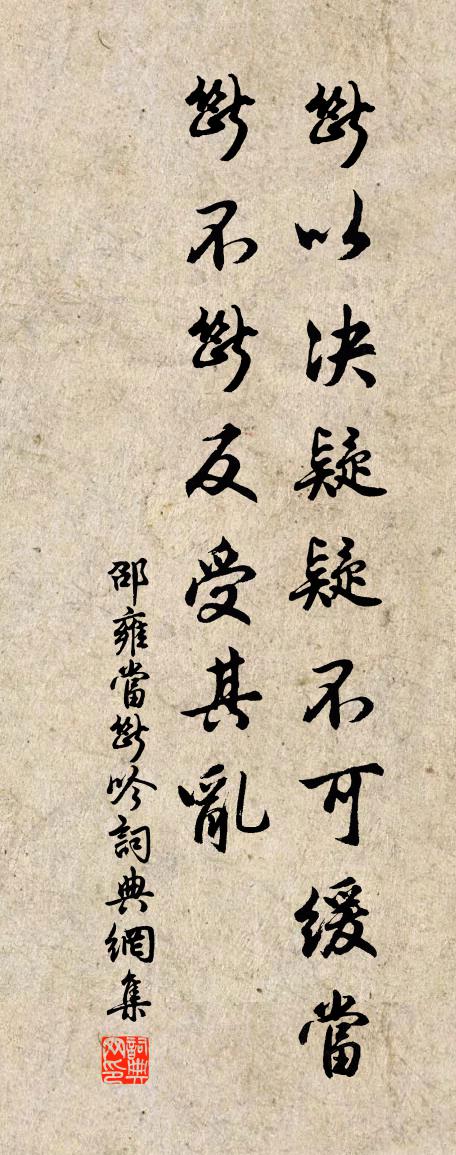 斷以决疑疑不可緩當
斷不斷反受其亂
邵雍當斷吟詞典網集
詞典网印